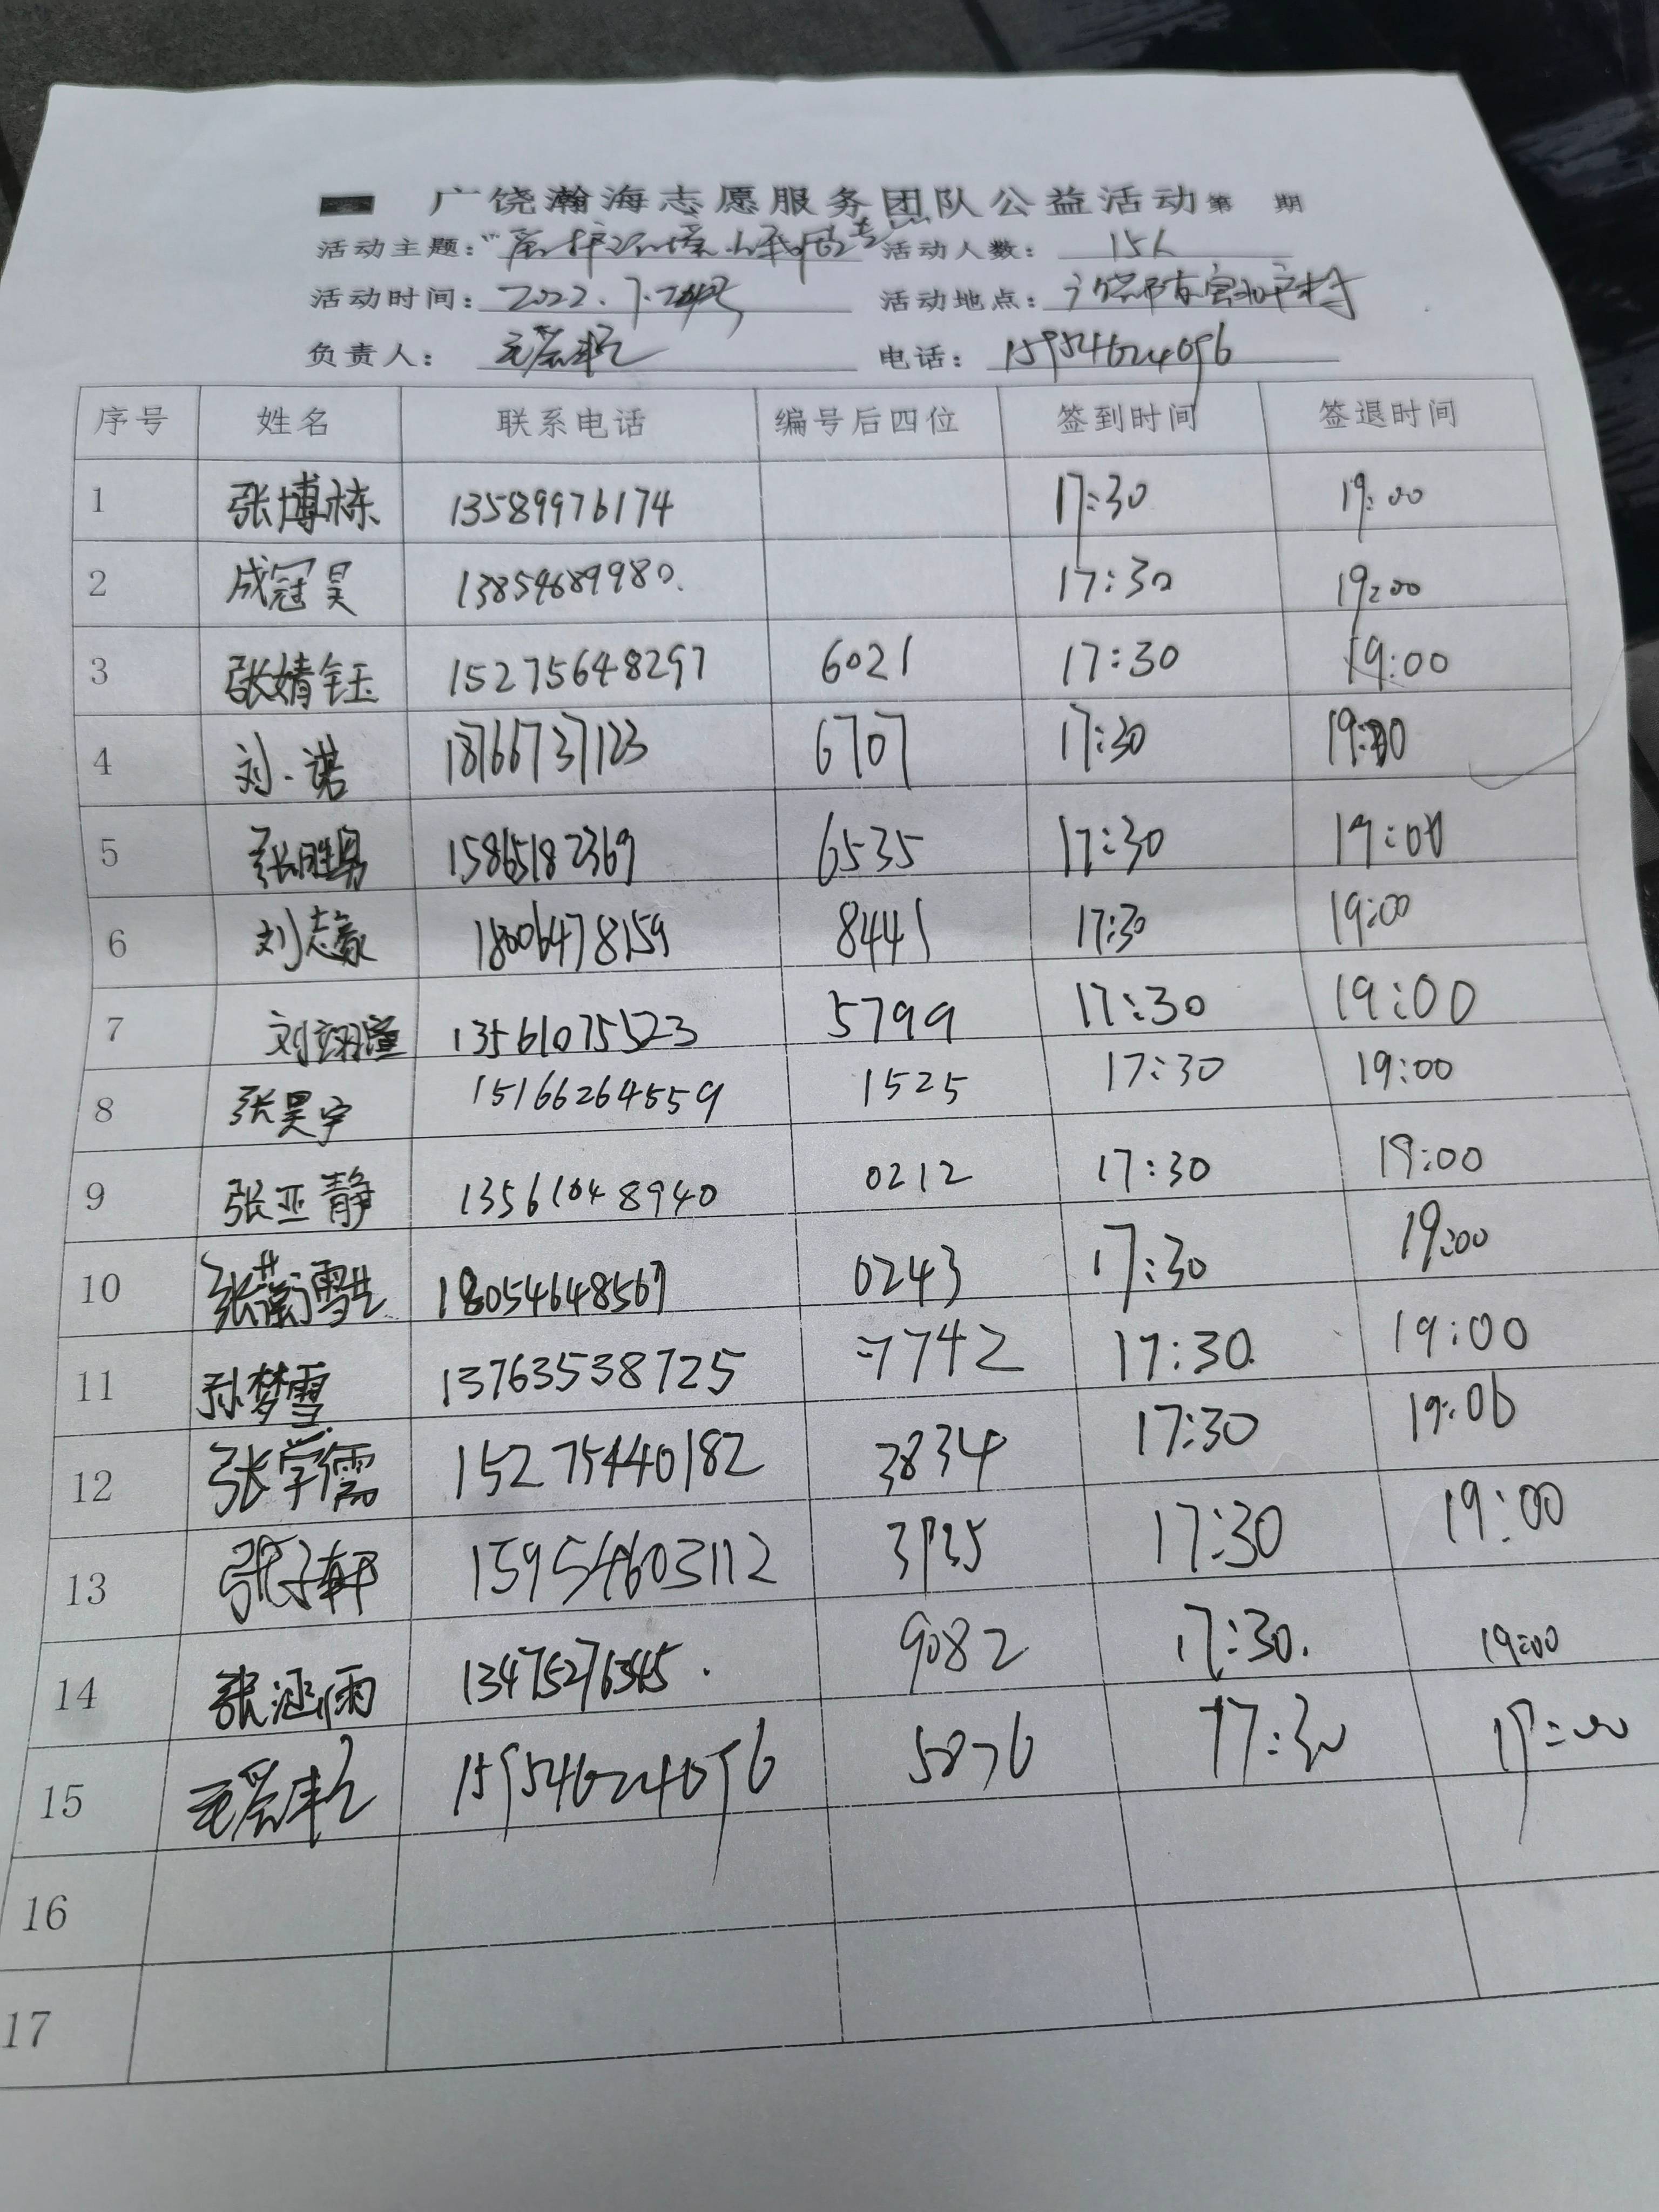 广饶瀚海志愿服务团队公益活动第 期
活动主题： 活动人数：15人
活动时间：2022.7. 活动地点：
负责人： 电话：15954624096
序号 姓名 联系电话 编号后四位 签到时间 签退时间
1 张博栋 13589976174 17:30 19:00
2 成冠昊 13854689980. 17:30 19:00
3 张婧钰 15275648297 6021 17:30 19:00
4 刘一诺 18766737123 6707 17:30 19:00
5 张胜男 15865182369 6535 17:30 19:00
6 刘志豪 18006478159 8441 17:30 19:00
7 刘翊潼 13561075523 5799 17:30 19:00
8 张昊宇 15166264559 1525 17:30 19:00
9 张亚静 13561048940 0212 17:30 19:00
10 18054648567 0243 17:30 19:00
11 孙梦雪 13763538725 7742 17:30 19:00
12 张学儒 15275440182 3834 17:30 19:00
13 张子轩 15954603112 17:30 19:00
14 张涵雨 13475276345. 9082 17:30. 19:00
15 15954624096 5876 17:30 19:00
16
17